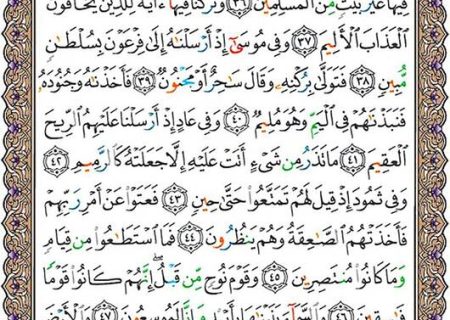 فِيهَا غَيْرَ بَيْتٍ مِّنَ ٱلْمُسْلِمِينَ ٣٦ وَتَرَكْنَا فِيهَآ ءَايَةً لِّلَّذِينَ يَخَافُونَ
ٱلْعَذَابَ ٱلْأَلِيمَ ٣٧ وَفِى مُوسَىٰٓ إِذْ أَرْسَلْنَٰهُ إِلَىٰ فِرْعَوْنَ بِسُلْطَٰنٍ
مُّبِينٍ ٣٨ فَتَوَلَّىٰ بِرُكْنِهِۦ وَقَالَ سَٰحِرٌ أَوْ مَجْنُونٌ ٣٩ فَأَخَذْنَٰهُ وَجُنُودَهُۥ
فَنَبَذْنَٰهُمْ فِى ٱلْيَمِّ وَهُوَ مُلِيمٌ ٤٠ وَفِى عَادٍ إِذْ أَرْسَلْنَا عَلَيْهِمُ ٱلرِّيحَ
ٱلْعَقِيمَ ٤١ مَا تَذَرُ مِن شَىْءٍ أَتَتْ عَلَيْهِ إِلَّا جَعَلَتْهُ كَٱلرَّمِيمِ ٤٢
وَفِى ثَمُودَ إِذْ قِيلَ لَهُمْ تَمَتَّعُوا۟ حَتَّىٰ حِينٍ ٤٣ فَعَتَوْا۟ عَنْ أَمْرِ رَبِّهِمْ
فَأَخَذَتْهُمُ ٱلصَّٰعِقَةُ وَهُمْ يَنظُرُونَ ٤٤ فَمَا ٱسْتَطَٰعُوا۟ مِن قِيَامٍ
وَمَا كَانُوا۟ مُنتَصِرِينَ ٤٥ وَقَوْمَ نُوحٍ مِّن قَبْلُ ۖ إِنَّهُمْ كَانُوا۟ قَوْمًا
فَٰسِقِينَ ٤٦ وَٱلسَّمَآءَ بَنَيْنَٰهَا بِأَيْي۟دٍ وَإِنَّا لَمُوسِعُونَ ٤٧ وَٱلْأَرْضَ